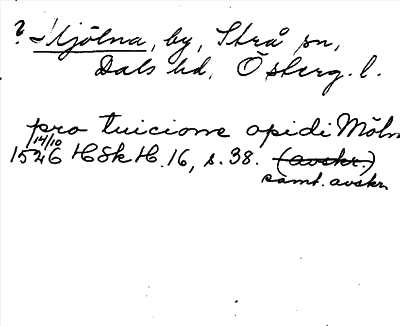 ? Mjölna, by, Strå sn,
Dals hd, Österg. l.
pro tuicione opidi Möln
14/10
1526 HSkH. 16, s. 38. (avskr.)
samt. avskr.